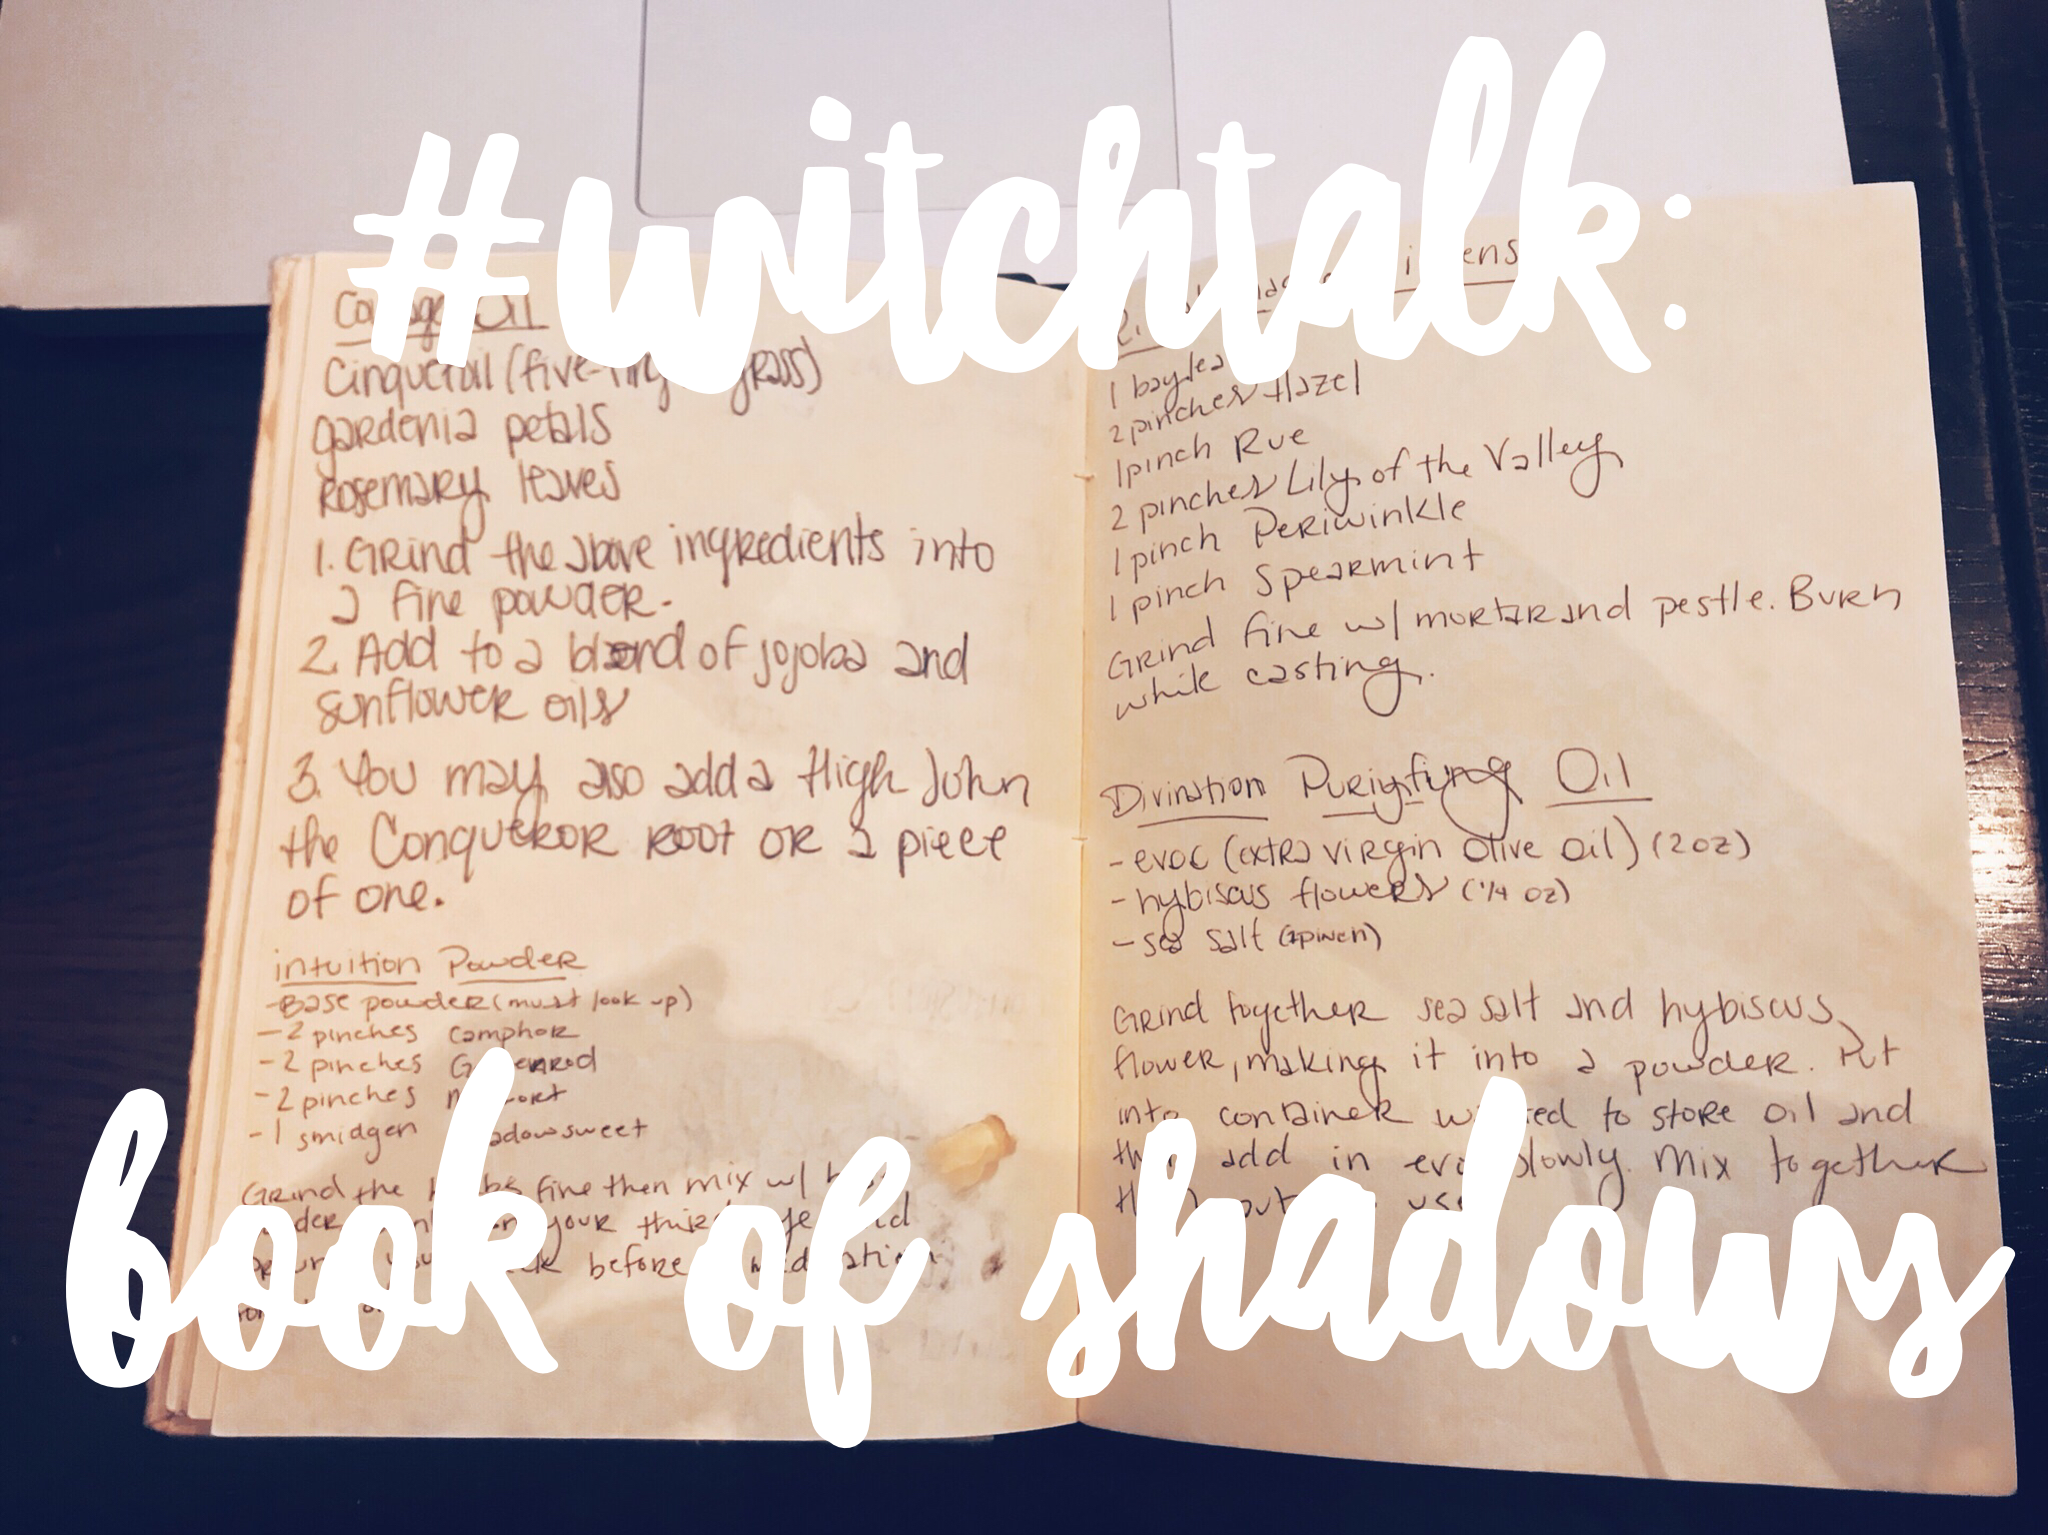 #witchtalk:
book of shadows
Oil
Cinquefoil (five- grass)
gardenia petals
Rosemary leaves
1. Grind the above ingredients into
a fine powder.
2. Add to a blend of jojoba and
sunflower oils
3. You may also add a High John
the Conqueror root or a piece
of one.
intuition Powder
-Base powder (must look up)
-2 pinches camphor
-2 pinches
-2 pinches
-1 smidgen
Grind the fine then mix w/
your third
before
1 bay
2 pinches Hazel
1 pinch Rue
2 pinches Lily of the Valley
1 pinch Periwinkle
1 pinch Spearmint
Grind fine w/ mortar and pestle. Burn
while casting.
Divination Puriyfyng Oil
- evoc (extra virgin olive oil) (2oz)
- hybiscus flowers (1/4 oz)
- sea salt
Grind together sea salt and hybiscus
flower, making it into a powder. Put
into container to store oil and
add in slowly. Mix together